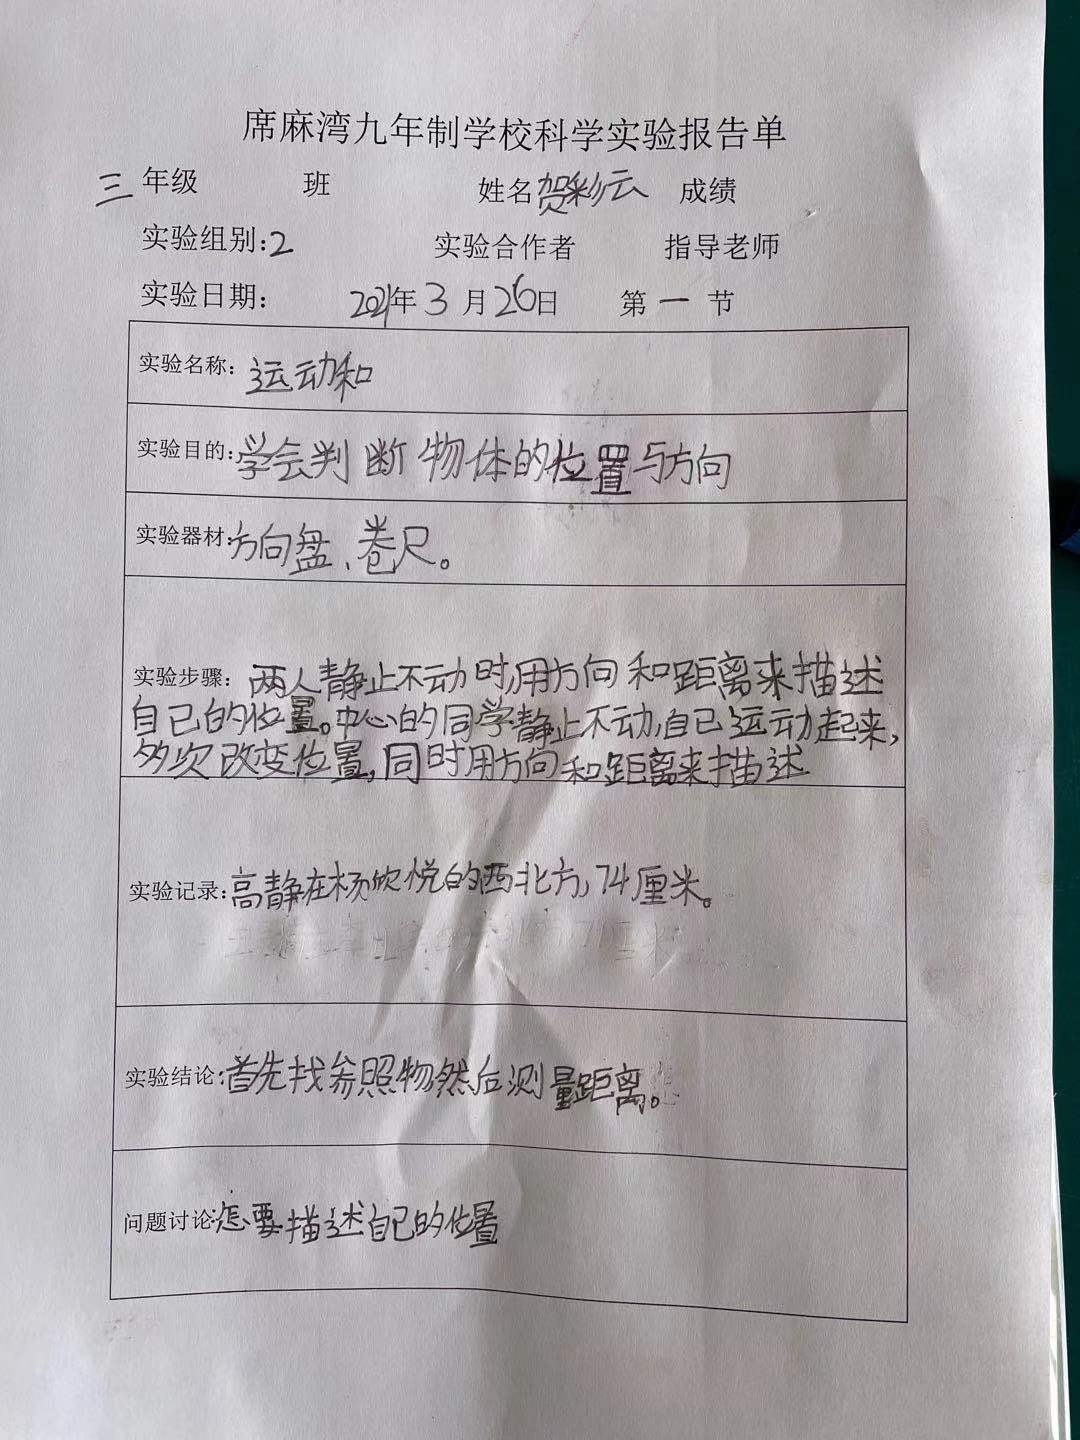 席麻湾九年制学校科学实验报告单
三年级 班 姓名贺彩云 成绩
实验组别:2 实验合作者 指导老师
实验日期: 2021年3月26日 第一节
实验名称: 运动和
实验目的:学会判断物体的位置与方向
实验器材:方向盘、卷尺。
实验步骤: 两人静止不动时,用方向和距离来描述
自己的位置。中心的同学静止不动,自己运动起来,
多次改变位置,同时用方向和距离来描述
实验记录:高静在杨欣悦的西北方,74厘米。
实验结论:首先找参照物,然后测量距离。
问题讨论:怎要描述自己的位置